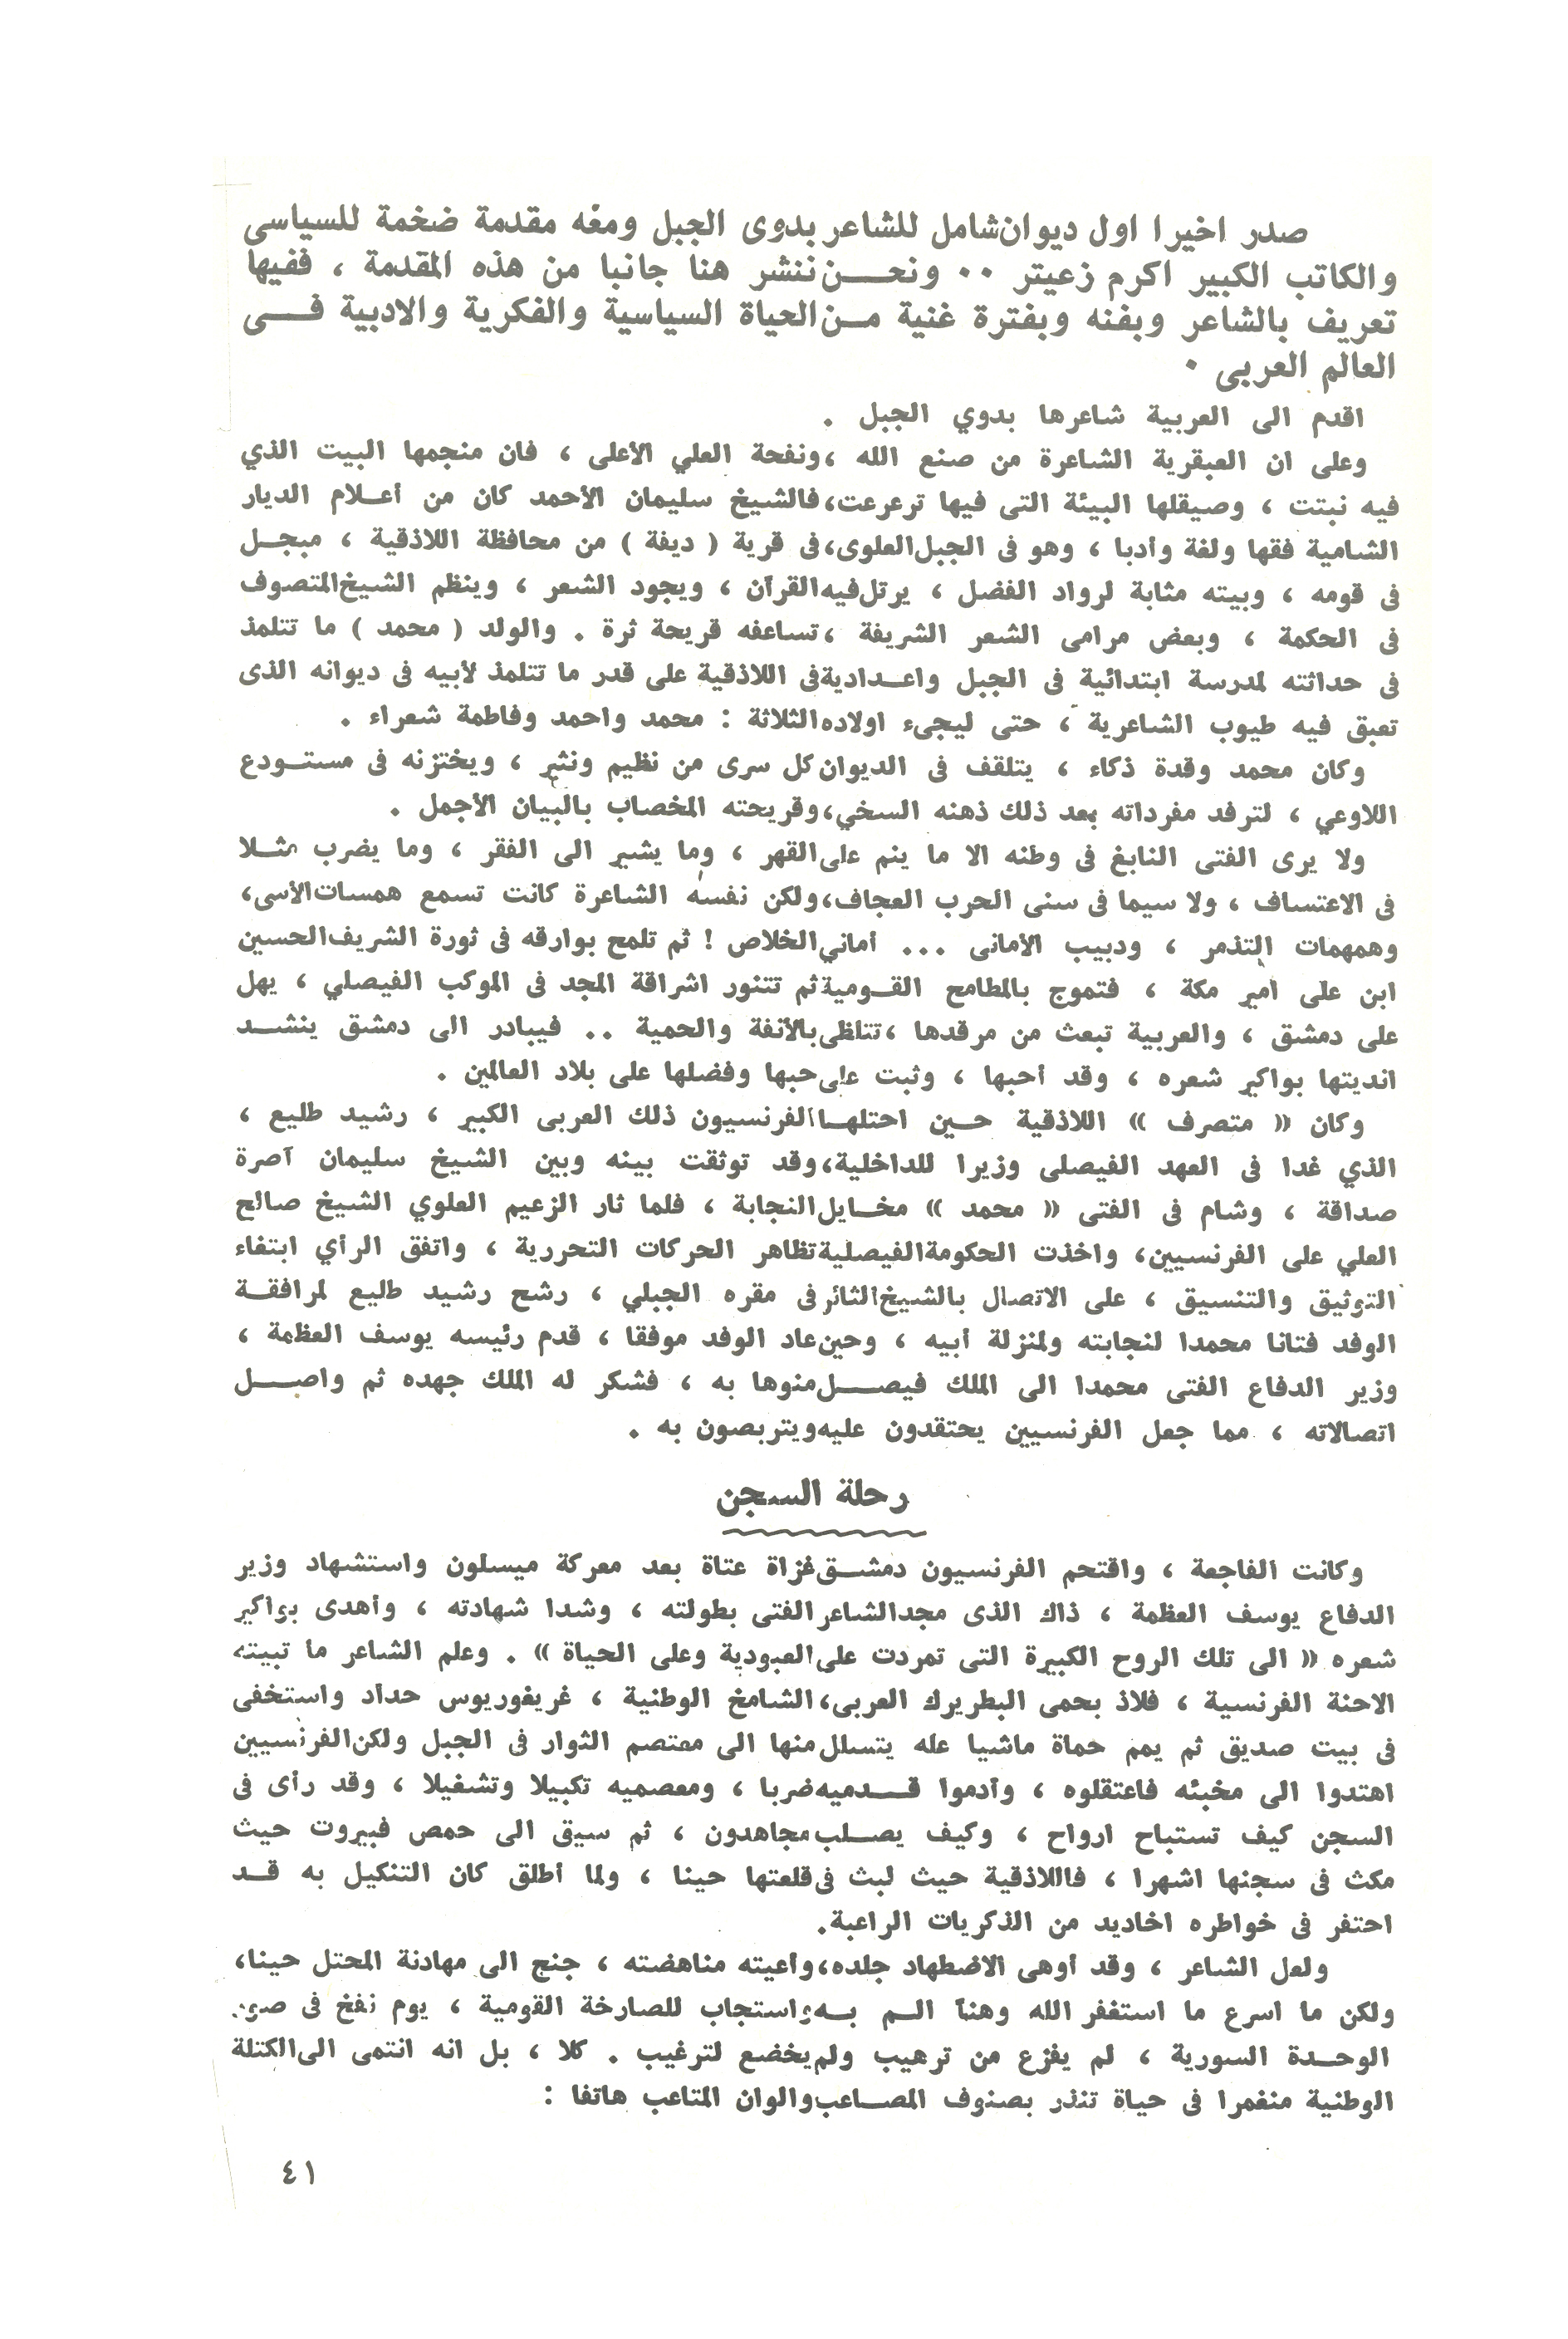 صدر اخيرا اول ديوان شامل للشاعر بدوى الجبل ومعه مقدمة ضخمة للسياسى
والكاتب الكبير اكرم زعيتر ٠٠ ونحن ننشر هنا جانبا من هذه المقدمة ، ففيها
تعريف بالشاعر وبفنه وبفترة غنية من الحياة السياسية والفكرية والادبية فى
العالم العربى ٠
اقدم الى العربية شاعرها بدوي الجبل .
وعلى ان العبقرية الشاعرة من صنع الله ، ونفحة العلي الأعلى ، فان منجمها البيت الذي
فيه نبتت ، وصيقلها البيئة التى فيها ترعرعت، فالشيخ سليمان الأحمد كان من أعلام الديار
الشامية فقها ولغة وأدبا ، وهو فى الجبل العلوى، فى قرية ( ديفة ) من محافظة اللاذقية ، مبجل
فى قومه ، وبيته مثابة لرواد الفضل ، يرتل فيه القرآن ، ويجود الشعر ، وينظم الشيخ المتصوف
فى الحكمة ، وبعض مرامى الشعر الشريفة ، تساعفه قريحة ثرة . والولد ( محمد ) ما تتلمذ
فى حداثته لمدرسة ابتدائية فى الجبل واعدادية فى اللاذقية على قدر ما تتلمذ لأبيه فى ديوانه الذى
تعبق فيه طيوب الشاعرية ، حتى ليجىء اولاده الثلاثة : محمد واحمد وفاطمة شعراء .
وكان محمد وقدة ذكاء ، يتلقف فى الديوان كل سرى من نظيم ونثير ، ويختزنه فى مستودع
اللاوعي ، لترفد مفرداته بعد ذلك ذهنه السخي، وقريحته المخصاب بالبيان الأجمل .
ولا يرى الفتى النابغ فى وطنه الا ما ينم على القهر ، وما يشير الى الفقر ، وما يضرب مثلا
فى الاعتساف ، ولا سيما فى سنى الحرب العجاف، ولكن نفسه الشاعرة كانت تسمع همسات الأسى،
وهمهمات التذمر ، ودبيب الأمانى ... أماني الخلاص ! ثم تلمح بوارقه فى ثورة الشريف الحسين
ابن على أمير مكة ، فتموج بالمطامح القومية ثم تتنور اشراقة المجد فى الموكب الفيصلي ، يهل
على دمشق ، والعربية تبعث من مرقدها ، تتلظى بالأنفة والحمية .. فيبادر الى دمشق ينشد
انديتها بواكير شعره ، وقد أحبها ، وثبت على حبها وفضلها على بلاد العالمين .
وكان « متصرف » اللاذقية حين احتلها الفرنسيون ذلك العربى الكبير ، رشيد طليع ،
الذي غدا فى العهد الفيصلى وزيرا للداخلية، وقد توثقت بينه وبين الشيخ سليمان آصرة
صداقة ، وشام فى الفتى « محمد » مخايل النجابة ، فلما ثار الزعيم العلوي الشيخ صالح
العلي على الفرنسيين، واخذت الحكومة الفيصلية تظاهر الحركات التحررية ، واتفق الرأي ابتغاء
التوثيق والتنسيق ، على الاتصال بالشيخ الثائر فى مقره الجبلي ، رشح رشيد طليع لمرافقة
الوفد فتانا محمدا لنجابته ولمنزلة أبيه ، وحين عاد الوفد موفقا ، قدم رئيسه يوسف العظمة ،
وزير الدفاع الفتى محمدا الى الملك فيصل منوها به ، فشكر له الملك جهده ثم واصل
اتصالاته ، مما جعل الفرنسيين يحتقدون عليه ويتربصون به .
رحلة السجن
وكانت الفاجعة ، واقتحم الفرنسيون دمشق غزاة عتاة بعد معركة ميسلون واستشهاد وزير
الدفاع يوسف العظمة ، ذاك الذى مجد الشاعر الفتى بطولته ، وشدا شهادته ، وأهدى بواكير
شعره « الى تلك الروح الكبيرة التى تمردت على العبودية وعلى الحياة » . وعلم الشاعر ما تبيته
الاحنة الفرنسية ، فلاذ بحمى البطريرك العربى، الشامخ الوطنية ، غريغوريوس حداد واستخفى
فى بيت صديق ثم يمم حماة ماشيا عله يتسلل منها الى معتصم الثوار فى الجبل ولكن الفرنسيين
اهتدوا الى مخبئه فاعتقلوه ، وأدموا قدميه ضربا ، ومعصميه تكبيلا وتشغيلا ، وقد رأى فى
السجن كيف تستباح ارواح ، وكيف يصلب مجاهدون ، ثم سيق الى حمص فبيروت حيث
مكث فى سجنها اشهرا ، فاللاذقية حيث لبث فى قلعتها حينا ، ولما أطلق كان التنكيل به قد
احتفر فى خواطره اخاديد من الذكريات الراعبة.
ولعل الشاعر ، وقد أوهى الاضطهاد جلده، وأعيته مناهضته ، جنح الى مهادنة المحتل حينا،
ولكن ما اسرع ما استغفر الله وهنا الم به واستجاب للصارخة القومية ، يوم نفخ فى صور
الوحدة السورية ، لم يفزع من ترهيب ولم يخضع لترغيب . كلا ، بل انه انتمى الى الكتلة
الوطنية منغمرا فى حياة تنذر بصنوف المصاعب والوان المتاعب هاتفا :
٤١